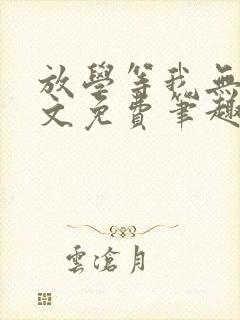 放學等我無
文免費筆趣
雲滄月